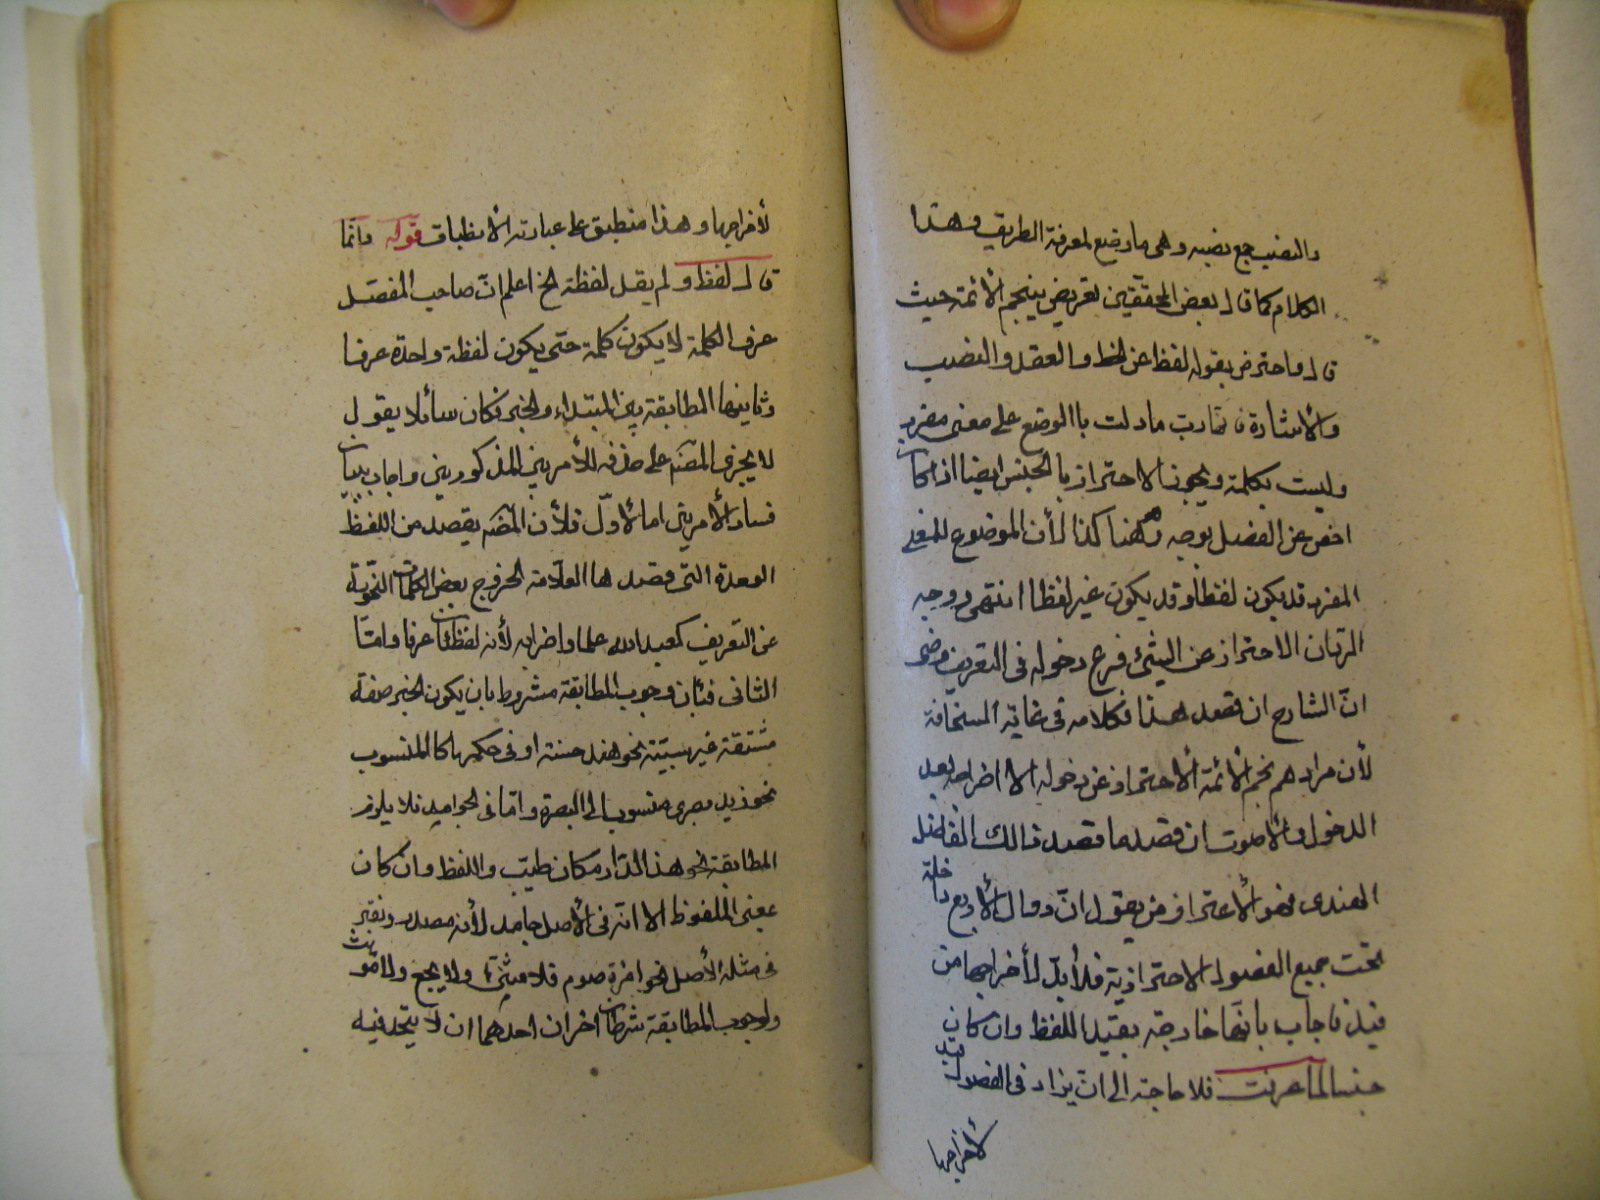 والنصب جمع نصبه وهى ما وضع لمعرفة الطريق وهذا
الكلام كما قال بعض المحققين تعريض بنجم الأئمة حيث
قال واحترض بقوله لفظ عن الخط والعقد والنصب
والأشارة فانها ربما دلت باالوضع على معنى مفرد
وليست بكلمة ويجوز الاحتراز بالجنس ايضا اذا كان
اخص عن الفصل بوجه وههنا كذا لأن الموضوع للمعنى
المفرد قد يكون لفظا وقد يكون غير لفظ انتهى ووجه
الاحتراز عن الشئ فرع دخوله فى التعريف
انّ الشارح ان قصد هذا فكلامه فى غاية السخافة
لأن مرادهم نجم الأئمة الاحتراز عن دخوله الا اخراجه بعد
الدخول والأصوت ان قصده ما قصد ذالك الفاضل
الهندى فهو الأعتراز من يقول انّ دوال الأربع داخلة
تحت جميع الفصول الاحترازية فلأبدّ لأخراجها من
قيد فاجاب بانّها خارجة بقيد اللفظ وان كان
جنسا لما عرفت فلا حاجة الى ان يزاد فى الفصول قيد
لأخراجها
لأخراجها وهذا منطبق على عبارته الأنطباق قوله وانّما
قال لفظ ولم يقل لفظة الخ اعلم انّ صاحب المفصّل
عرف الكلمة لا يكون كلمة حتى يكون لفظة واحدة عرفا
وثانيها المطابقة بين المبتداء والخبر فكان سائلا يقول
لا يجرى المصّ على حذفه للأمرين المذكورين واجاب ببيان
فساد الأمرين اما الأوّل فلأن المصّ يقصد من اللفظ
الوحدة التى قصدها العلّامة لخروج بعض الكلمات النّحويّة
عن التعريف كعبد الله علما واضرابه لأنه لفظتان عرفا وامّا
الثانى فبان وجوب المطابقة مشروط بان يكون الخبر صفة
مشتقة غير سببيّة نحو هند حسنة او فى حكمها كا المنسوب
نحو زيد بصرى منسوب الى البصرة وامّا فى الجوامد فلا يلزم
المطابقة نحو هذ الدّار مكان طيّب واللفظ وان كان
بمعنى الملفوظ الا انّه فى الأصل جامد لأنه مصدر ويعتبر
فى مثله الأصل نحو امرة صوم فلا يثنّى ولا يجمع ولا يؤنث
ولوجوب المطابقة شرطان اخران احدهما ان لا يتّحد فيه